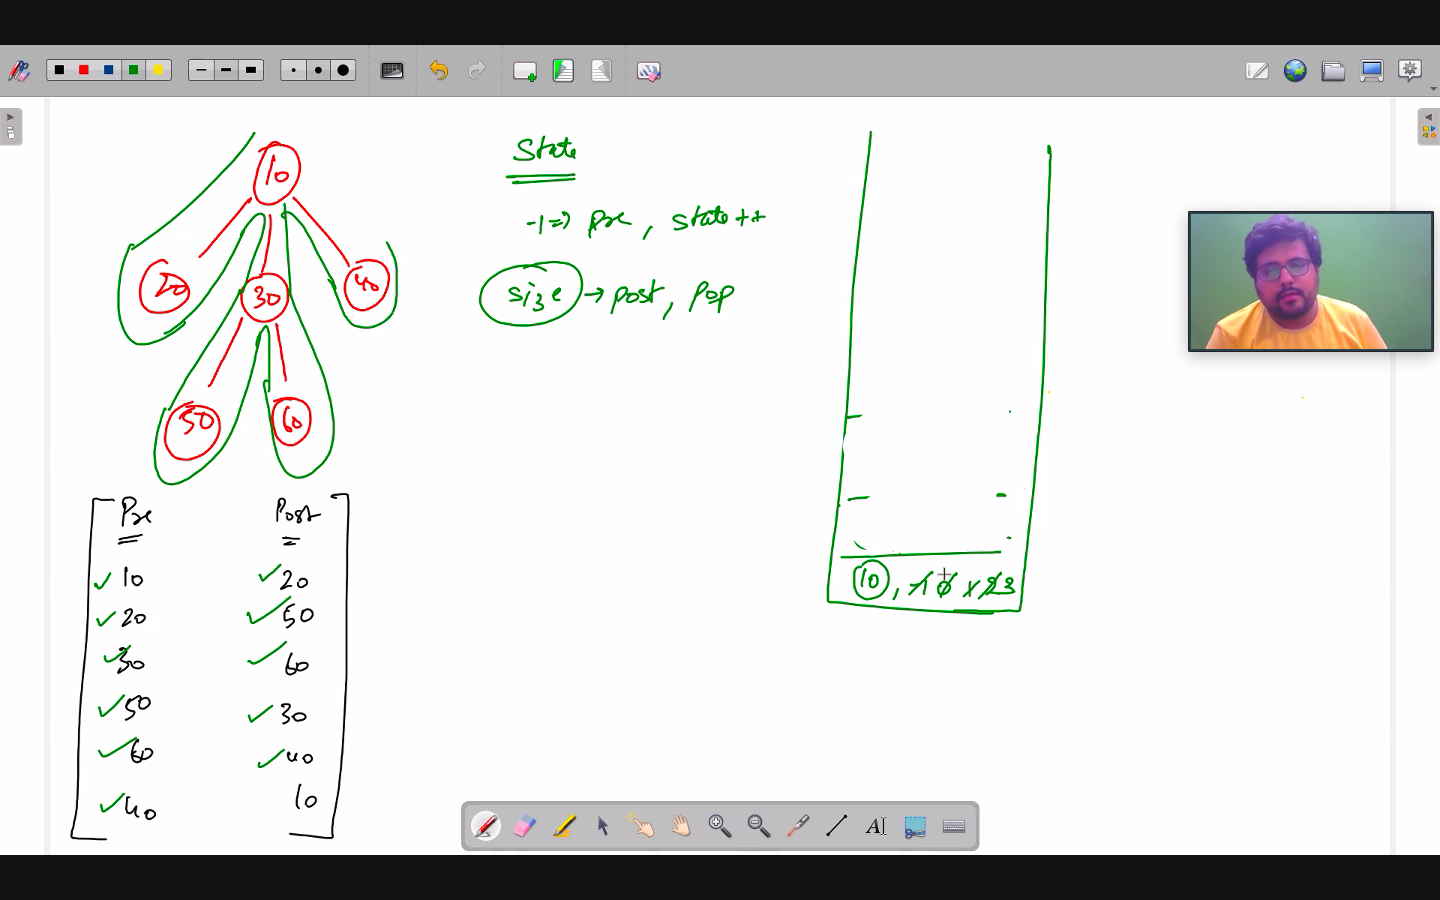 10
20
30
40
50
60
State
-1 => Pre, state++
size → post, pop
Pre
10
20
30
50
60
40
Post
20
50
60
30
40
10
10, -1 0 1 2 3